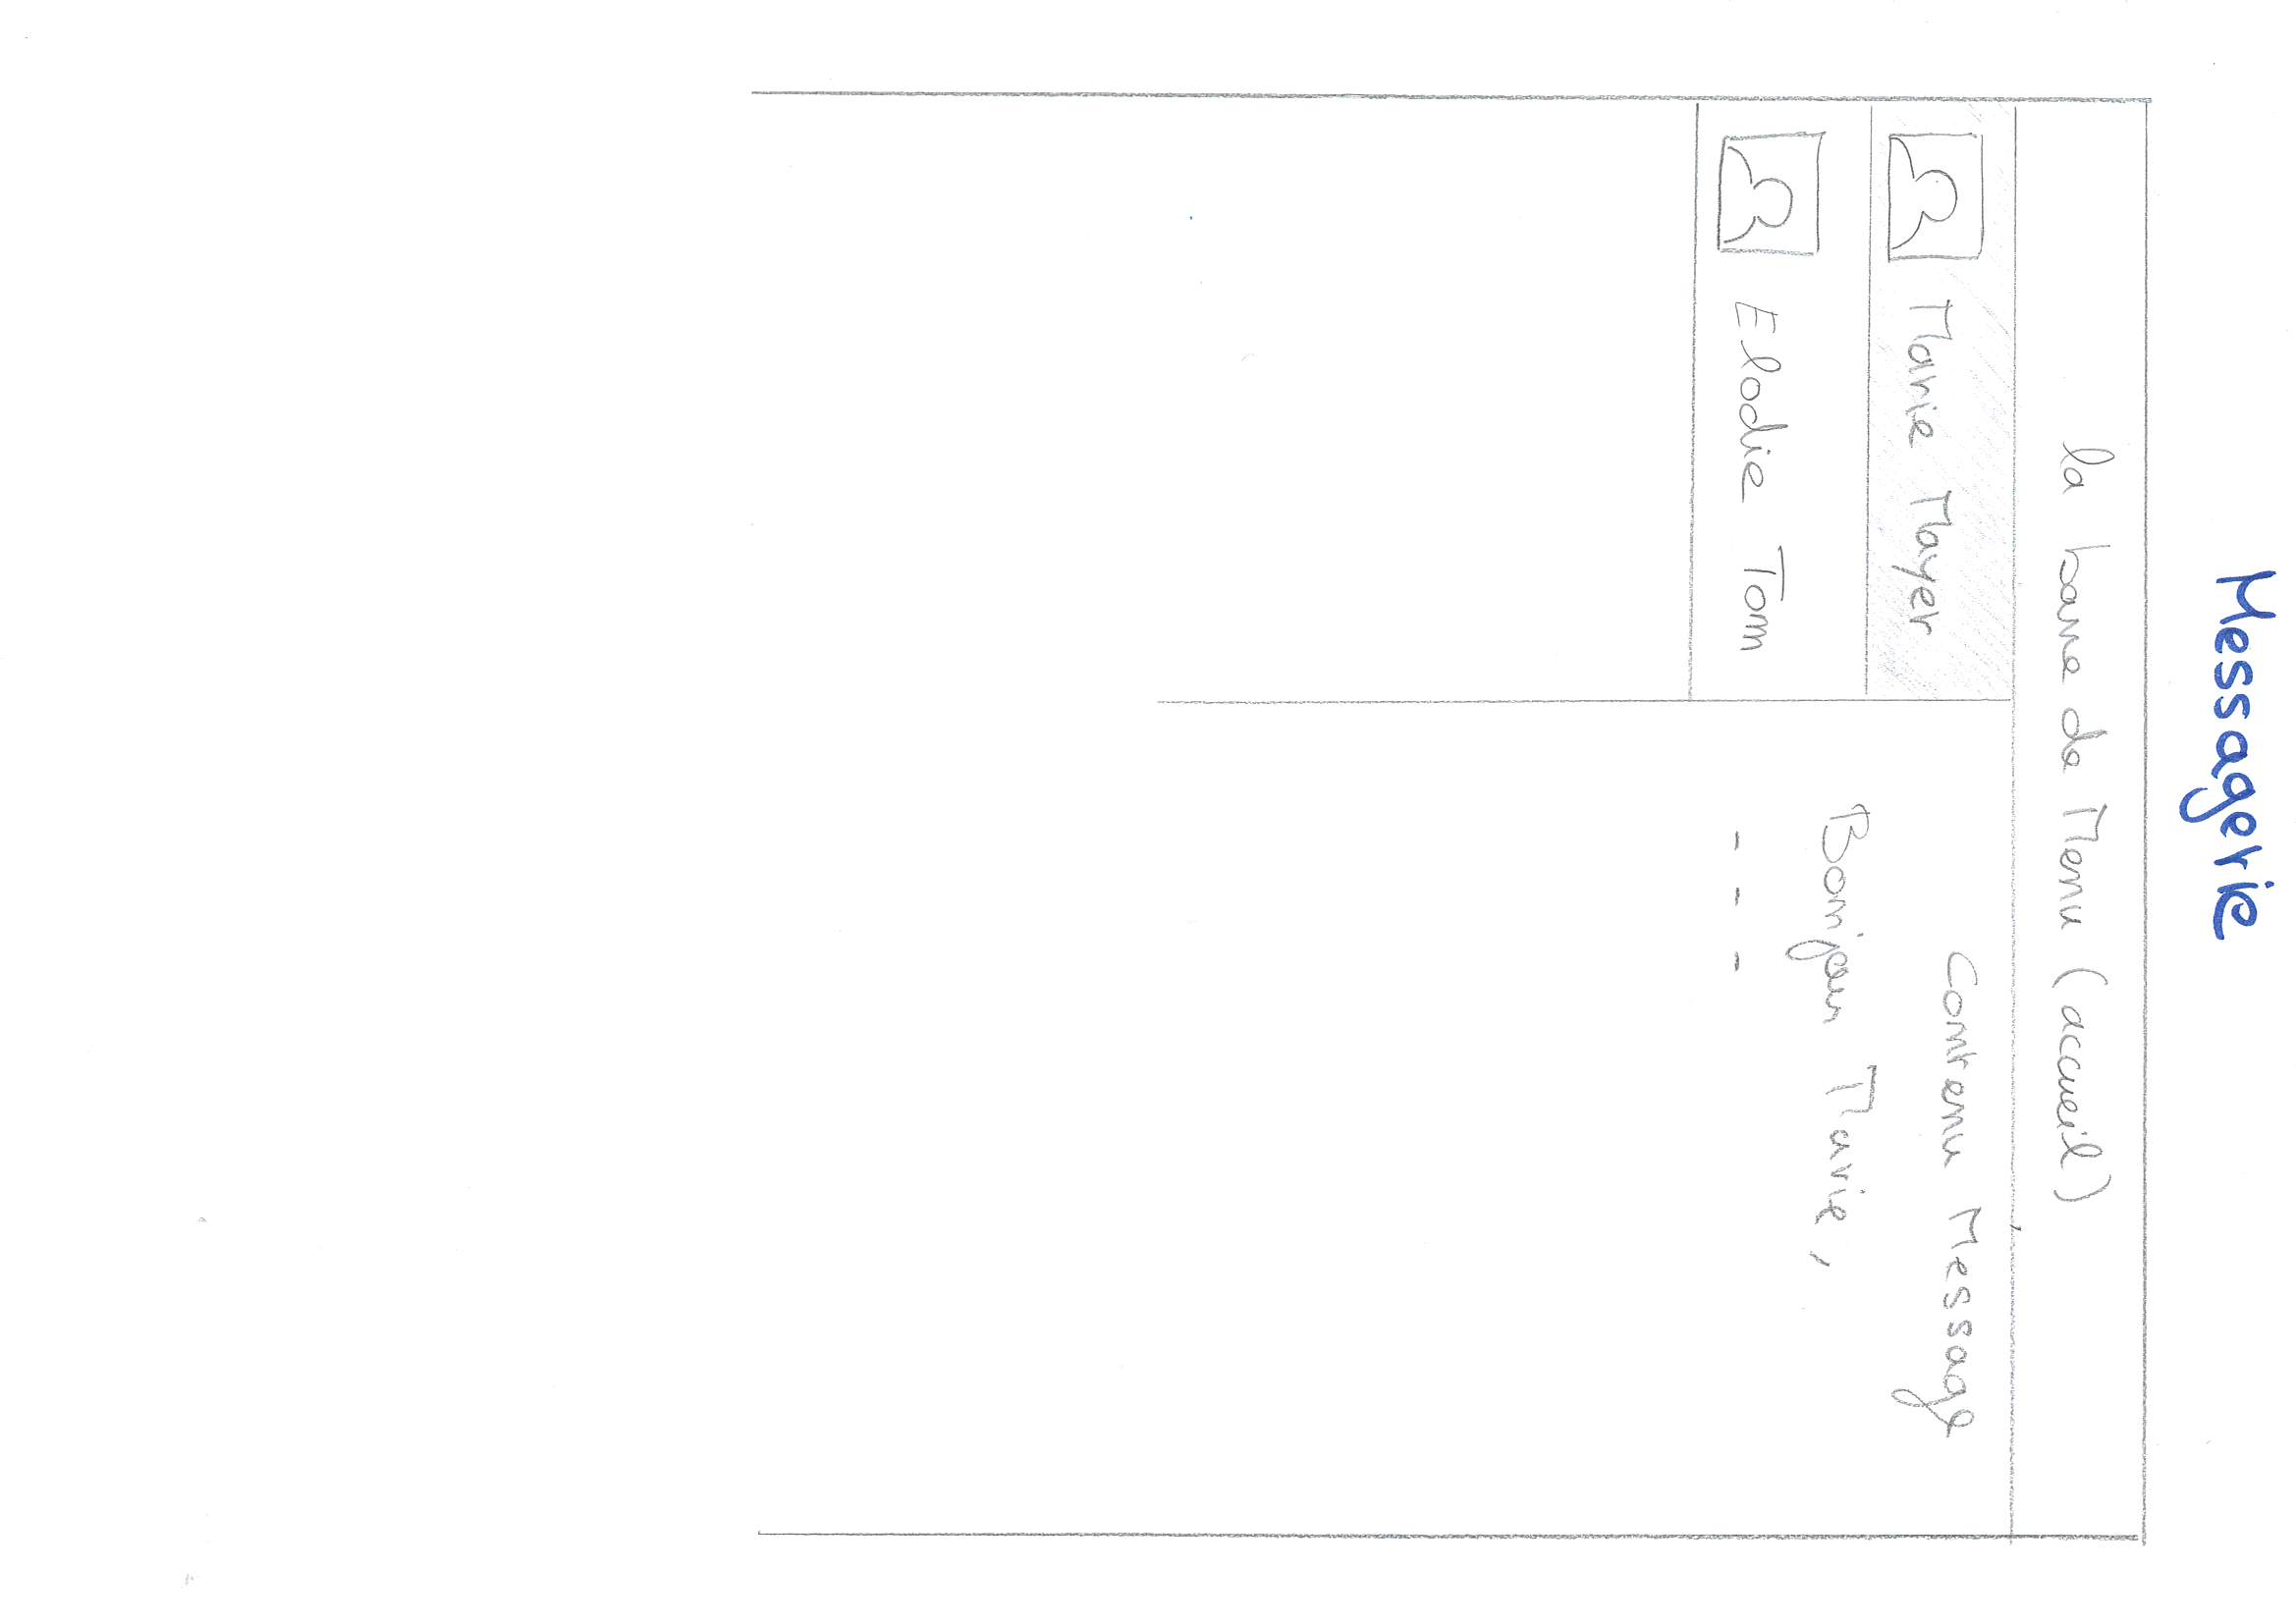 Messagerie
la barre de Menu (accueil)
Marie Mayer
Elodie Tom
Contenu Message
Bonjour Marie,
- - -